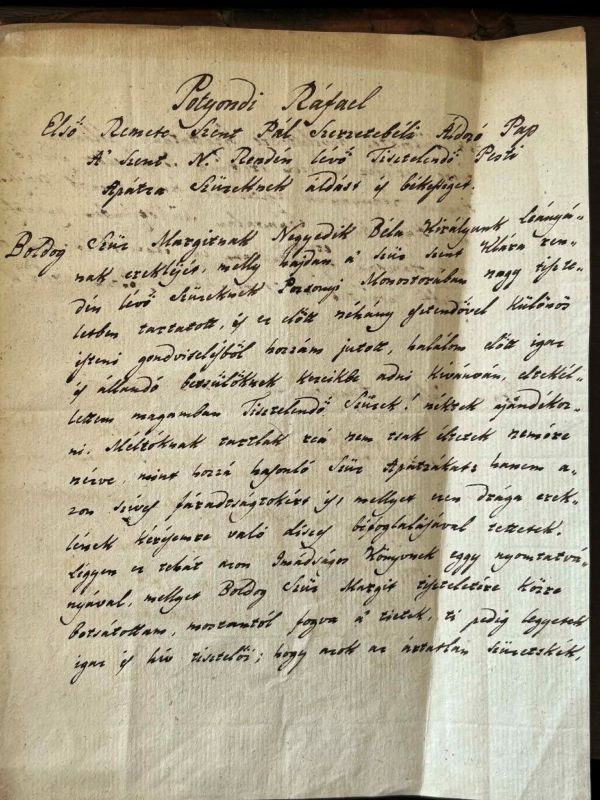 Potyondi Ráfael
Első Remete Szent Pál Szerzetebéli Áldozó Pap
A' Szent N. Rendén lévő Tisztelendő Pesti
Apátza Szüzeknek áldást és békeséget.
Boldog Szűz Margitnak Negyedik Béla Királyunk leányá-
nak ereklyéjét, melly hajdan a' Szűz Szent Klára ren-
dén lévő Szüzeknek Posonyi Monostorában nagy tiszte-
letben tartatott, és ez előtt néhány esztendővel különös
isteni gondviselésből hozzám jutott, halálom előtt igaz
és állandó betsülőknek kezeikbe adni kivánván, eltekél-
lettem magamban Tisztelendő Szüzek! néktek ajándékoz-
ni. Méltóknak tartlak reá nem tsak éltetek nemére
nézve, mint hozzá hasonló Szűz Apátzákat: hanem a-
zon szíves fáradtságtokért is, mellyet ezen drága erek-
lyének kérésemre való díszes béfoglalásával tettetek.
Légyen ez tehát azon Imádságos Könyvnek eggy nyomtatvá-
nyával, mellyet Boldog Szűz Margit tiszteletére közre
botsátottam, mostantól fogva a' tietek, ti pedig legyetek
igaz és hív tisztelői; hogy azok az ártatlan Szüzetskék,